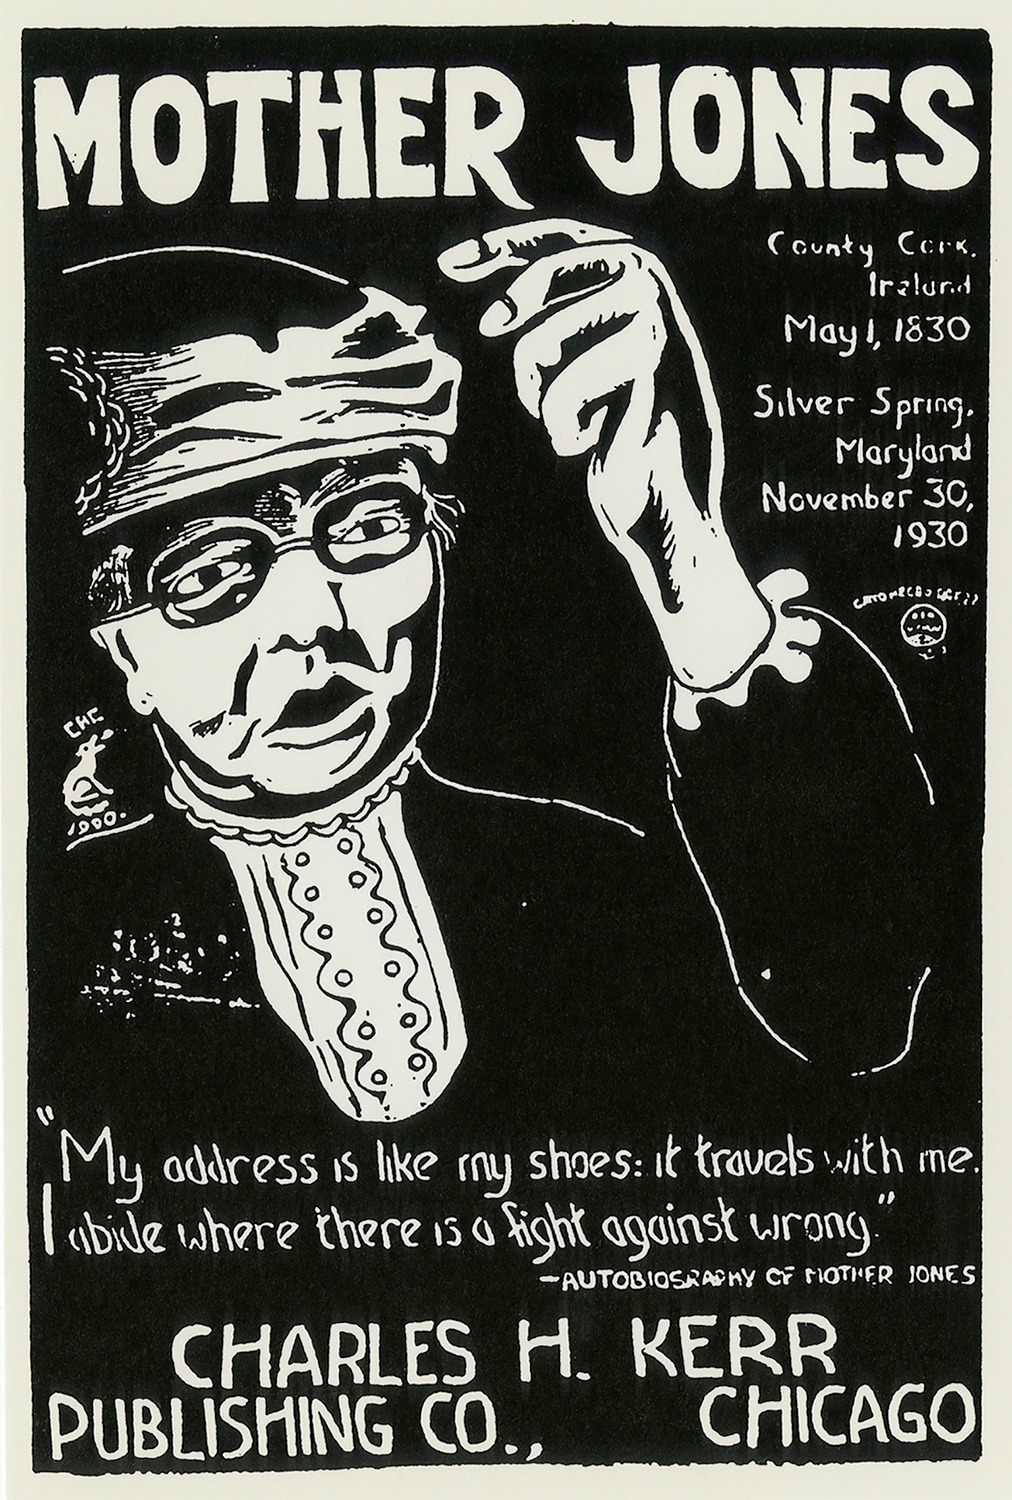 MOTHER JONES
County Cork,
Ireland
May 1, 1830
Silver Spring,
Maryland
November 30,
1930
"My address is like my shoes: it travels with me.
I abide where there is a fight against wrong."
—AUTOBIOGRAPHY OF MOTHER JONES
CHARLES H. KERR
PUBLISHING CO., CHICAGO